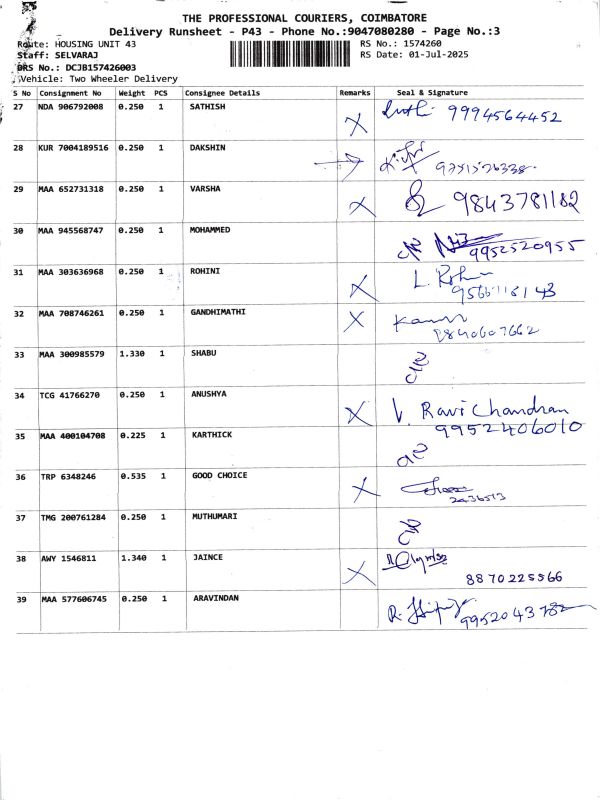 THE PROFESSIONAL COURIERS, COIMBATORE
Delivery Runsheet - P43 - Phone No.:9047080280 - Page No.:3
Route: HOUSING UNIT 43 RS No.: 1574260
Staff: SELVARAJ RS Date: 01-Jul-2025
DRS No.: DCJB157426003
Vehicle: Two Wheeler Delivery
S No Consignment No Weight PCS Consignee Details Remarks Seal & Signature
27 NDA 906792008 0.250 1 SATHISH X 9994564452
28 KUR 7004189516 0.250 1 DAKSHIN
29 MAA 652731318 0.250 1 VARSHA X 9843781182
30 MAA 945568747 0.250 1 MOHAMMED 9952520955
31 MAA 303636968 0.250 1 ROHINI X L. Rohini
32 MAA 708746261 0.250 1 GANDHIMATHI X 9840607662
33 MAA 300985579 1.330 1 SHABU
34 TCG 41766270 0.250 1 ANUSHYA X V. Ravi Chandran
9952406010
35 MAA 400104708 0.225 1 KARTHICK
36 TRP 6348246 0.535 1 GOOD CHOICE X 2436513
37 TMG 200761284 0.250 1 MUTHUMARI
38 AWY 1546811 1.340 1 JAINCE X
8870225566
39 MAA 577606745 0.250 1 ARAVINDAN 9952043782